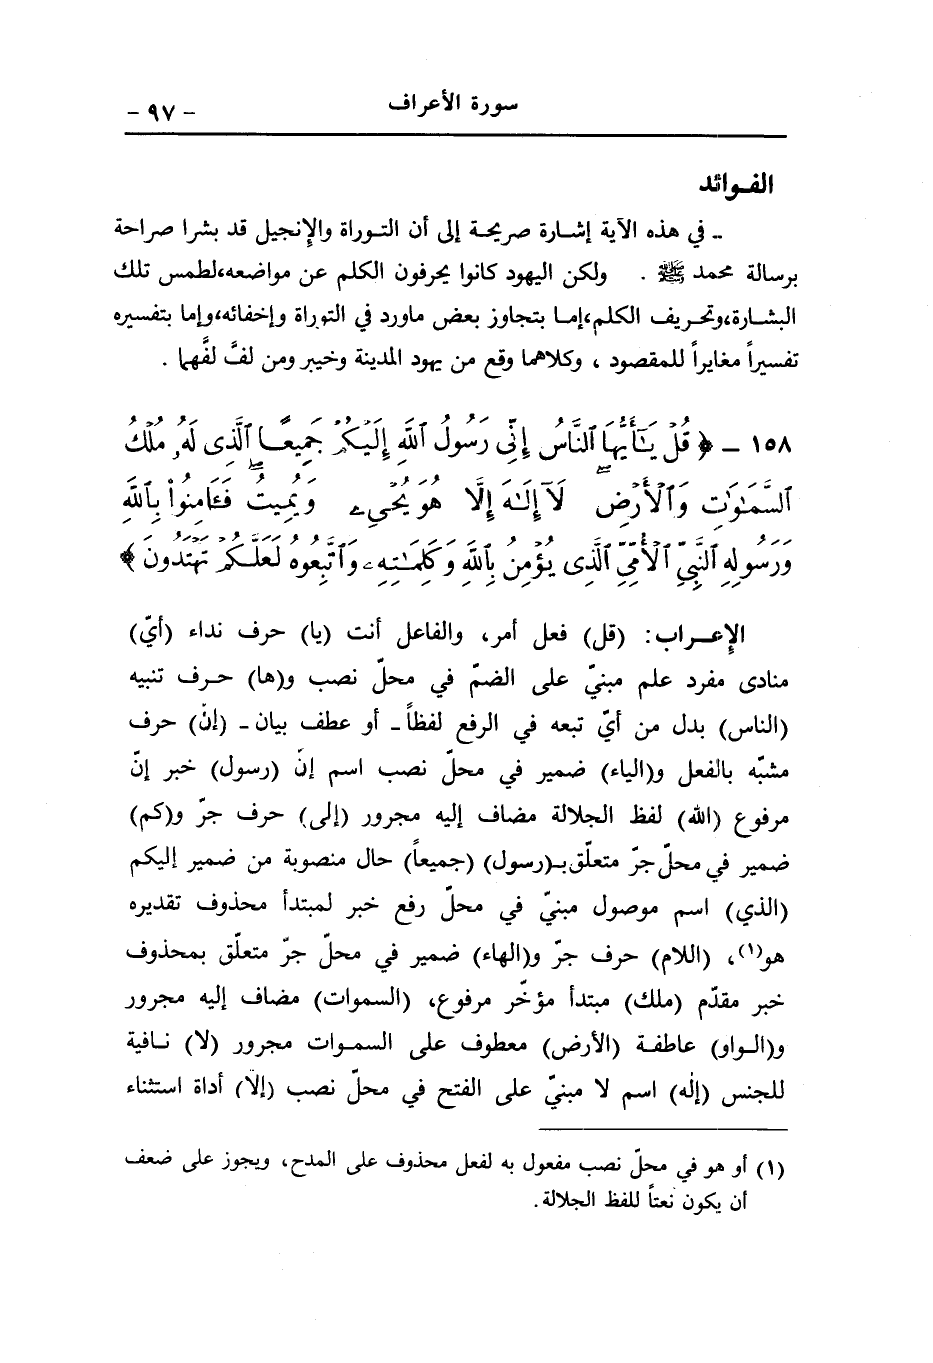 سورة الأعراف - ٩٧ -
الفـوائد
ـ في هذه الآية إشـارة صريحـة إلى أن التـوراة والإنجيل قد بشرا صراحة
برسالة محمد ﷺ . ولكن اليهود كانوا يحرفون الكلم عن مواضعه، لطمس تلك
البشـارة، وتحـريف الكلم، إمـا بتجاوز بعض ماورد في التوراة وإخفائه، وإما بتفسيره
تفسيراً مغايراً للمقصود ، وكلاهما وقع من يهود المدينة وخيبر ومن لفَّ لفَّهما .
١٥٨ ـ ﴿ قُلْ يَـٰٓأَيُّهَا ٱلنَّاسُ إِنِّى رَسُولُ ٱللَّهِ إِلَيْكُمْ جَمِيعًا ٱلَّذِى لَهُۥ مُلْكُ
ٱلسَّمَـٰوَٰتِ وَٱلْأَرْضِۖ لَآ إِلَـٰهَ إِلَّا هُوَ يُحْىِۦ وَيُمِيتُۖ فَـَٔامِنُوا۟ بِٱللَّهِ
وَرَسُولِهِ ٱلنَّبِىِّ ٱلْأُمِّىِّ ٱلَّذِى يُؤْمِنُ بِٱللَّهِ وَكَلِمَـٰتِهِۦ وَٱتَّبِعُوهُ لَعَلَّكُمْ تَهْتَدُونَ ﴾
الإعـراب: (قل) فعل أمر، والفاعل أنت (يا) حرف نداء (أيّ)
منادى مفرد علم مبنيّ على الضمّ في محلّ نصب و(ها) حـرف تنبيه
(الناس) بدل من أيّ تبعه في الرفع لفظاً ـ أو عطف بيان ـ (إنّ) حرف
مشبّه بالفعل و(الياء) ضمير في محلّ نصب اسم إنّ (رسول) خبر إنّ
مرفوع (الله) لفظ الجلالة مضاف إليه مجرور (إلى) حرف جرّ و(كم)
ضمير في محلّ جرّ متعلّق بـ(رسول) (جميعاً) حال منصوبة من ضمير إليكم
(الذي) اسم موصول مبنيّ في محلّ رفع خبر لمبتدأ محذوف تقديره
هو(١)، (اللام) حرف جرّ و(الهاء) ضمير في محلّ جرّ متعلّق بمحذوف
خبر مقدّم (ملك) مبتدأ مؤخّر مرفوع، (السموات) مضاف إليه مجرور
و(الـواو) عاطفـة (الأرض) معطوف على السمـوات مجرور (لا) نـافية
للجنس (إله) اسم لا مبنيّ على الفتح في محلّ نصب (إلّا) أداة استثناء
(١) أو هو في محلّ نصب مفعول به لفعل محذوف على المدح، ويجوز على ضعف
أن يكون نعتاً للفظ الجلالة.